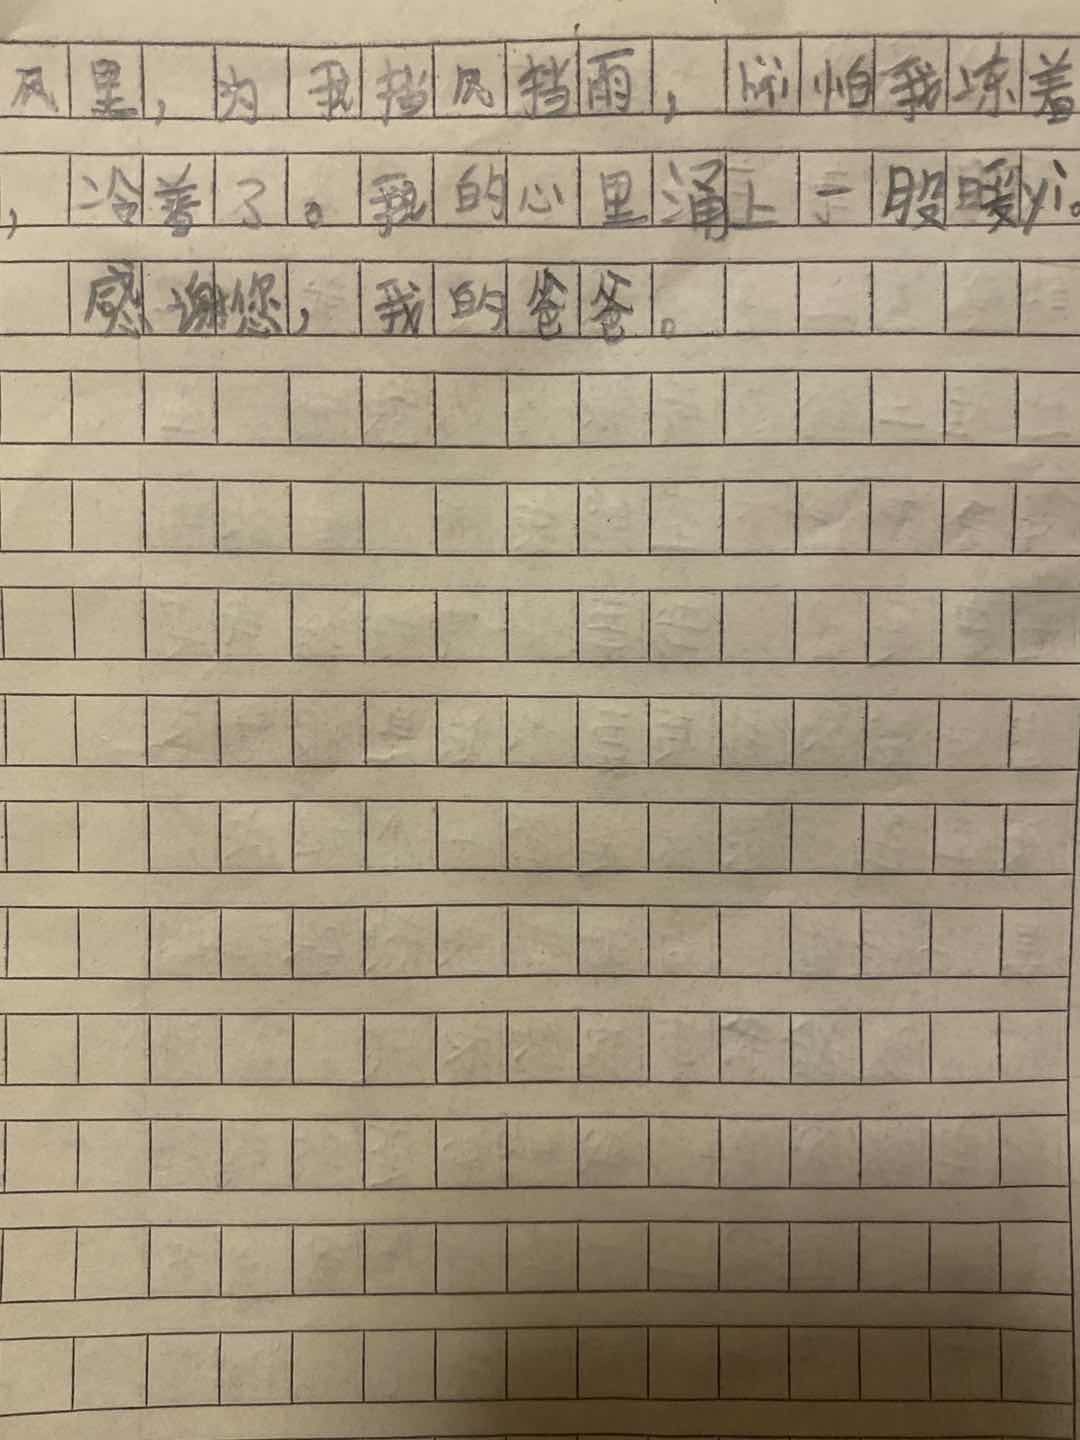 风里，为我挡风挡雨，所怕我冻着
，冷着了。我的心里涌上一股暖yi。
感谢您，我的爸爸。